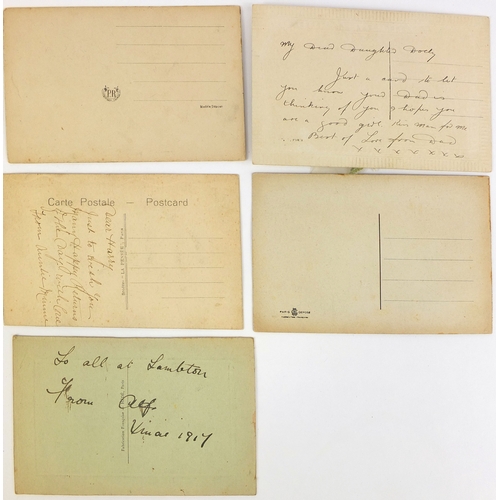 PR
My Dear Daughter Dolly
Just a card to let
you know your Dad is
thinking of you & hopes you
are a good girl
Best of Love from Dad
x x x x x x x
Carte Postale — Postcard
Dear Harry
Just to wish you
Many Happy Returns
of the Day with love
from Auntie
PARIS
To all at Lambton
From Alf
Xmas 1917